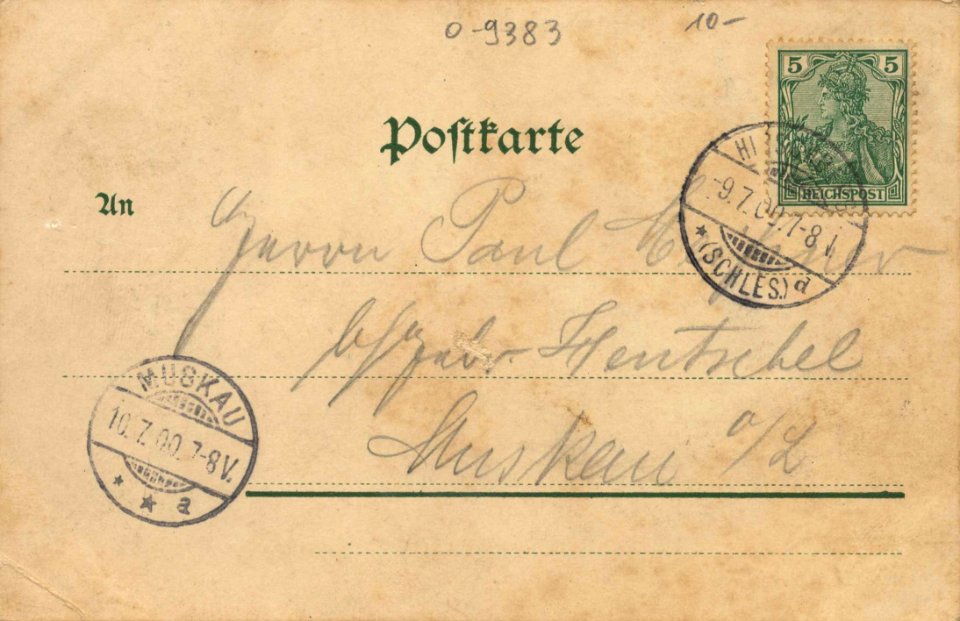 0-9383
10-
5 5
REICHSPOST
Postkarte
An
Herrn Paul
b/Gebr. Hentschel
Muskau o/L
-9.7.00.7-8V.
*(SCHLES.) a
MUSKAU
10.7.00.7-8V.
* * a